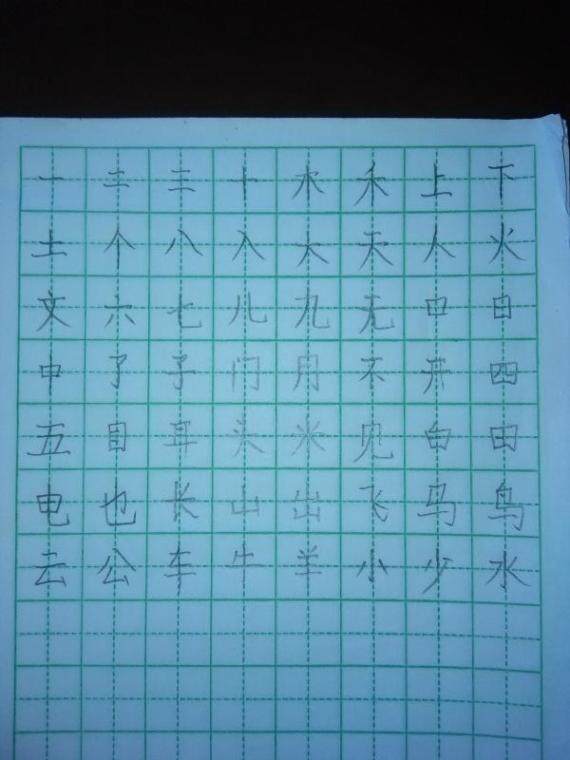 一 二 三 十 木 禾 上 下
土 个 八 入 大 天 人 火
文 六 七 儿 九 无 口 日
中 了 子 门 月 不 开 四
五 目 耳 头 米 见 白 田
电 也 长 山 出 飞 马 鸟
云 公 车 牛 羊 小 少 水